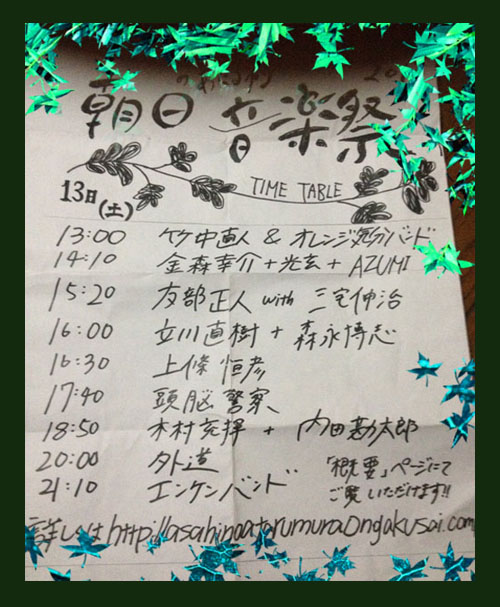 朝日音楽祭
13日(土)
TIME TABLE
13:00 竹中直人 & オレンジ気分バンド
14:10 金森幸介 + 光玄 + AZUMI
15:20 友部正人 with 三宅伸治
16:00 立川直樹 + 森永博志
16:30 上條恒彦
17:40 頭脳警察
18:50 木村充揮 + 内田勘太郎
20:00 外道 「概要」ページにて
21:10 エンケンバンド ご覧いただけます!!
詳しくはhttp://asahinaatarumuraongakusai.com